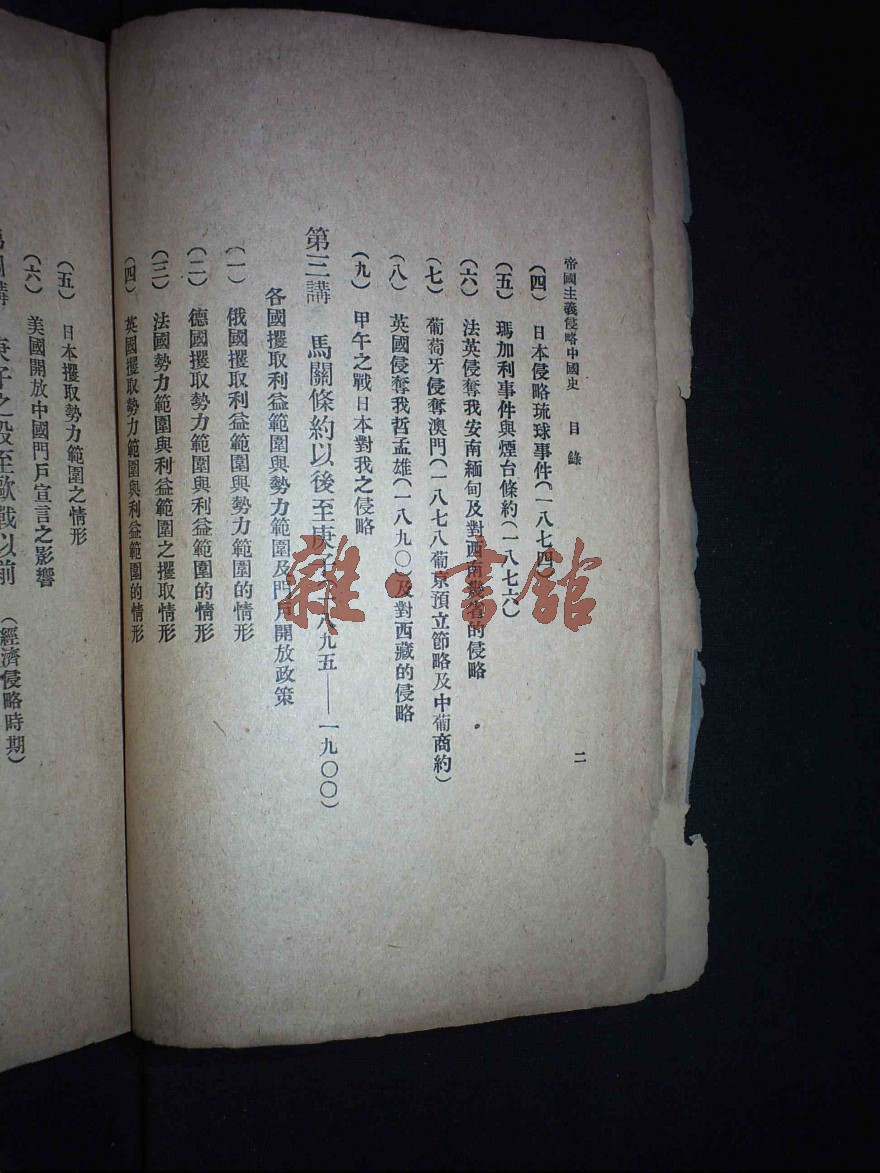 帝國主義侵略中國史 目錄 二
(四) 日本侵略琉球事件(一八七四)
(五) 瑪加利事件與煙台條約(一八七六)
(六) 法英侵奪我安南緬甸及對西南幾省的侵略
(七) 葡萄牙侵奪澳門(一八七八葡京預立節略及中葡商約)
(八) 英國侵奪我哲孟雄(一八九〇)及對西藏的侵略
(九) 甲午之戰日本對我之侵略
第三講 馬關條約以後至庚子(一八九五——一九〇〇)
各國攫取利益範圍與勢力範圍及門戶開放政策
(一) 俄國攫取利益範圍與勢力範圍的情形
(二) 德國攫取勢力範圍與利益範圍的情形
(三) 法國勢力範圍與利益範圍之攫取情形
(四) 英國攫取勢力範圍與利益範圍的情形
(五) 日本攫取勢力範圍之情形
(六) 美國開放中國門戶宣言之影響
講 庚子之役至歐戰以前 (經濟侵略時期)
雜·書館